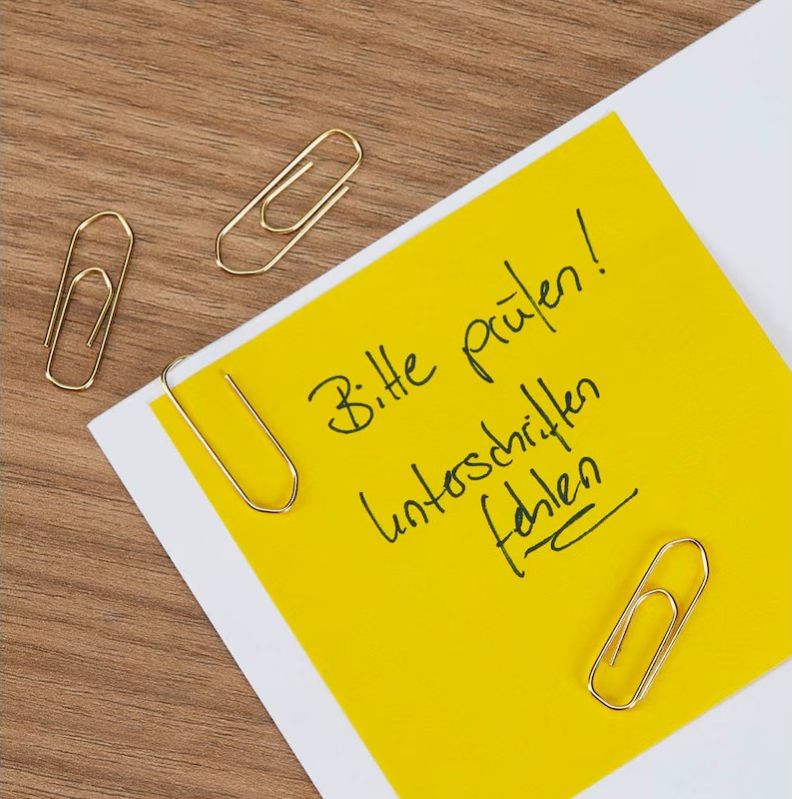 Bitte prüfen!
Unterschriften
fehlen